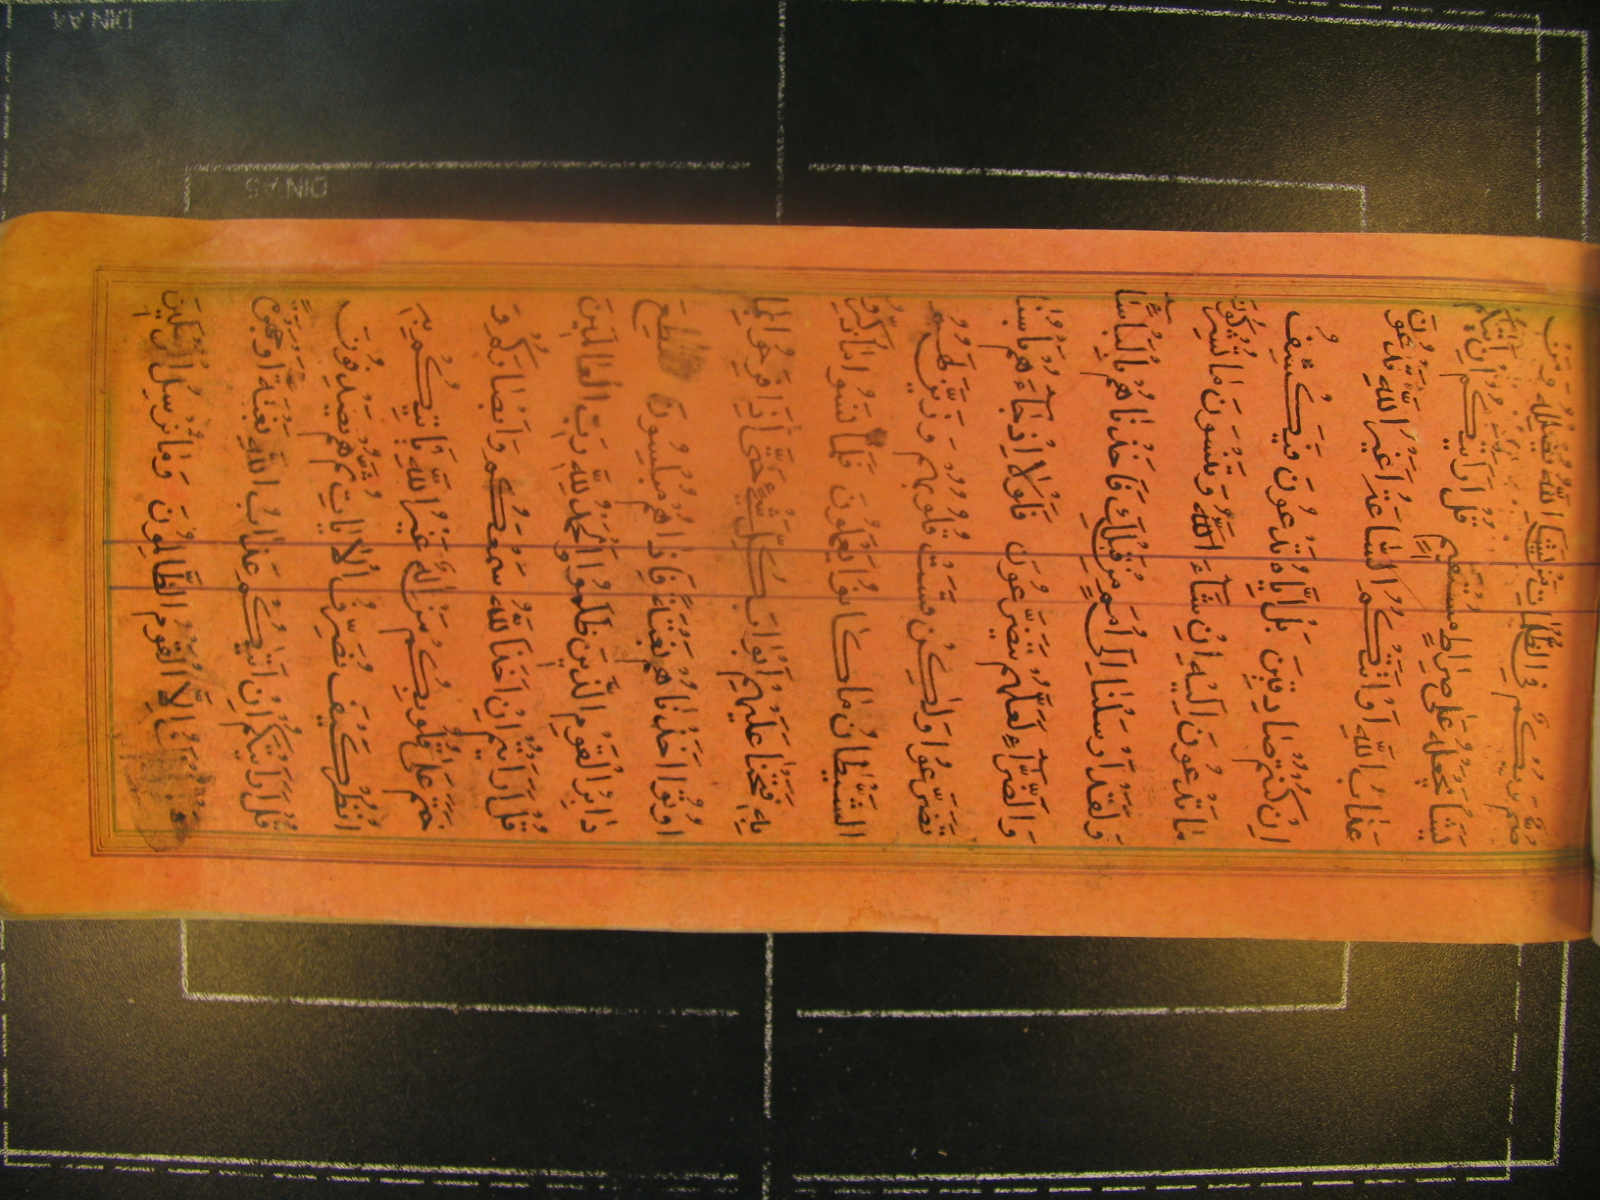 DIN A4
DIN A5
صُمٌّ وَبُكْمٌ فِي الظُّلُمَاتِ مَنْ يَشَا اللّٰهُ يُضْلِلْهُ وَمَنْ
يَشَأْ يَجْعَلْهُ عَلٰى صِرَاطٍ مُسْتَقِيمٍ قُلْ اَرَاَيْتَكُمْ اِنْ اَتٰيكُمْ
عَذَابُ اللّٰهِ اَوْ اَتَتْكُمُ السَّاعَةُ اَغَيْرَ اللّٰهِ تَدْعُونَ
اِنْ كُنْتُمْ صَادِقِينَ بَلْ اِيَّاهُ تَدْعُونَ فَيَكْشِفُ
مَا تَدْعُونَ اِلَيْهِ اِنْ شَآءَ اللّٰهُ وَتَنْسَوْنَ مَا تُشْرِكُونَ
وَلَقَدْ اَرْسَلْنَا اِلٰٓى اُمَمٍ مِنْ قَبْلِكَ فَاَخَذْنَاهُمْ بِالْبَاْسَآءِ
وَالضَّرَّآءِ لَعَلَّهُمْ يَتَضَرَّعُونَ فَلَوْلَا اِذْ جَآءَهُمْ بَاْسُنَا
تَضَرَّعُوا وَلٰكِنْ قَسَتْ قُلُوبُهُمْ وَزَيَّنَ لَهُمُ
الشَّيْطَانُ مَا كَانُوا يَعْمَلُونَ فَلَمَّا نَسُوا مَا ذُكِّرُوا
بِهِ فَتَحْنَا عَلَيْهِمْ اَبْوَابَ كُلِّ شَيْءٍ حَتّٰى اِذَا فَرِحُوا بِمَا
اُوتُوا اَخَذْنَاهُمْ بَغْتَةً فَاِذَا هُمْ مُبْلِسُونَ فَقُطِعَ
دَابِرُ الْقَوْمِ الَّذِينَ ظَلَمُوا وَالْحَمْدُ لِلّٰهِ رَبِّ الْعَالَمِينَ
قُلْ اَرَاَيْتُمْ اِنْ اَخَذَ اللّٰهُ سَمْعَكُمْ وَاَبْصَارَكُمْ وَ
خَتَمَ عَلٰى قُلُوبِكُمْ مَنْ اِلٰهٌ غَيْرُ اللّٰهِ يَاْتِيكُمْ بِهِ
اُنْظُرْ كَيْفَ نُصَرِّفُ الْاٰيَاتِ ثُمَّ هُمْ يَصْدِفُونَ
قُلْ اَرَاَيْتَكُمْ اِنْ اَتٰيكُمْ عَذَابُ اللّٰهِ بَغْتَةً اَوْ جَهْرَةً
اِلَّا الْقَوْمُ الظَّالِمُونَ وَمَا نُرْسِلُ الْمُرْسَلِينَ